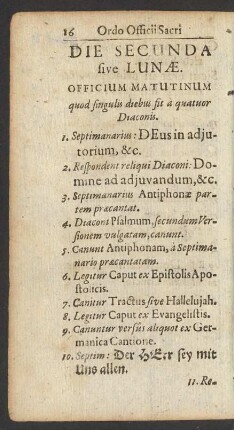 16 Ordo Officii Sacri
DIE SECUNDA
sive LUNÆ.
OFFICIUM MATUTINUM
quod singulis diebus fit à quatuor
Diaconis.
1. Septimanarius: DEus in adju-
torium, &c.
2. Respondent reliqui Diaconi: Do-
mine ad adjuvandum, &c.
3. Septimanarius Antiphonæ par-
tem præcantat.
4. Diaconi Psalmum, secundum Ver-
sionem vulgatam, canunt.
5. Canunt Antiphonam, à Septima-
nario præcantatam.
6. Legitur Caput ex Epistolis Apo-
stolicis.
7. Canitur Tractus sive Hallelujah.
8. Legitur Caput ex Evangelistis.
9. Canuntur versûs aliquot ex Ger-
manica Cantione.
10. Septim: Der HErr sey mit
Uns allen.
11. Re-